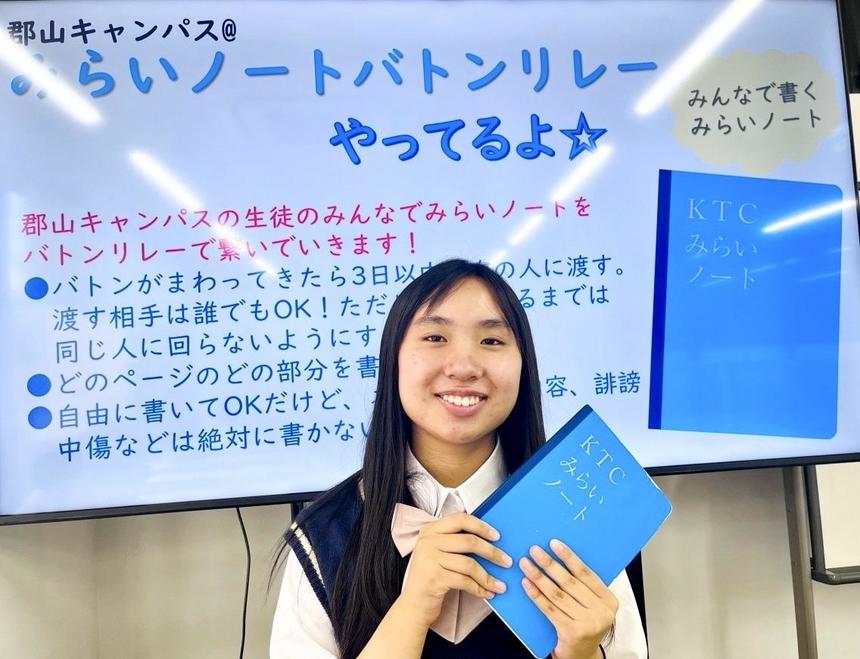 郡山キャンパス@
みらいノートバトンリレー
やってるよ☆
みんなで書く
みらいノート
郡山キャンパスの生徒のみんなでみらいノートを
バトンリレーで繋いでいきます！
●バトンがまわってきたら3日以内 の人に渡す。
渡す相手は誰でもOK！ただ るまでは
同じ人に回らないようにす
●どのページのどの部分を書
●自由に書いてOKだけど、 容、誹謗
中傷などは絶対に書かない
KTC
みらい
ノート
KTC
みらい
ノート